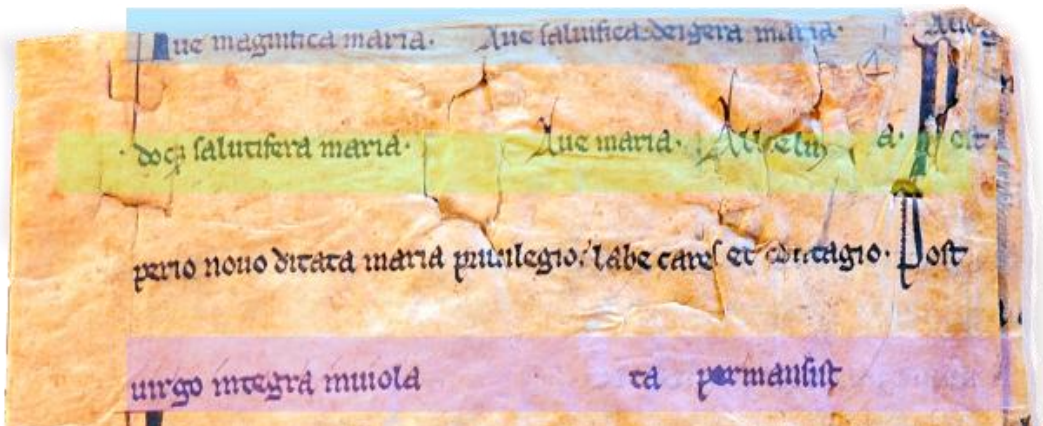 Aue magnifica maria. Aue salutifica deigera maria. Aue
. docꝫ salutifera maria. Aue maria. a. est
perio nouo ditata maria priuilegio. labe cares et contagio. Post
uirgo integra inuiola ta permansist